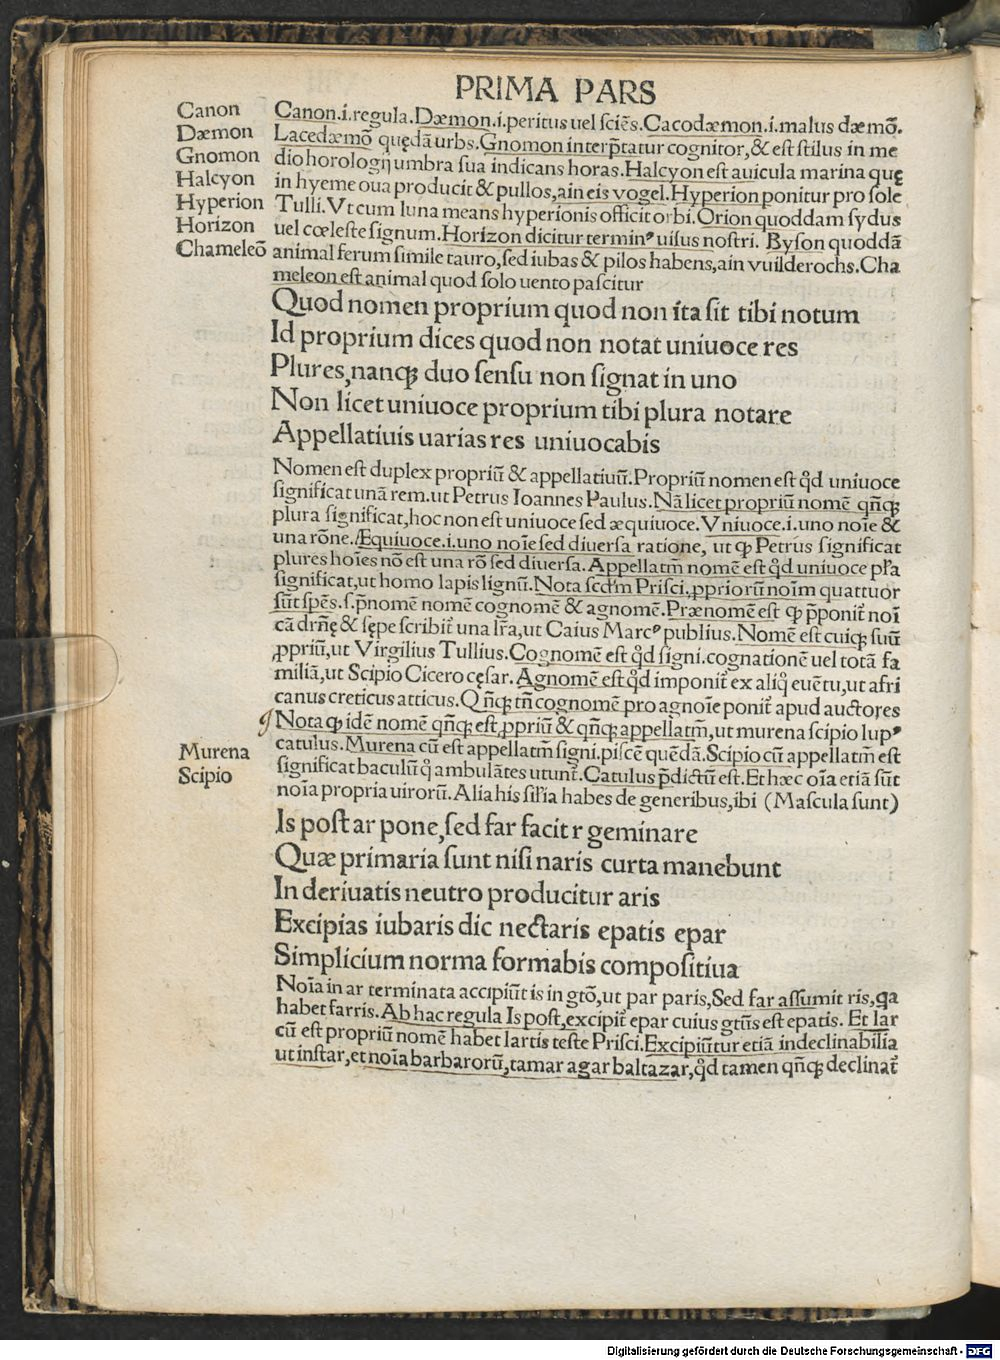 PRIMA PARS
Canon
Dæmon
Gnomon
Halcyon
Hyperion
Horizon
Chameleō
Canon.i.regula.Dæmon.i.peritus uel sciēs.Cacodæmon.i.malus dæmō.
Lacedæmō quędā urbs.Gnomon interp̄tatur cognitor,& est stilus in me
dio horologij umbra sua indicans horas.Halcyon est auicula marina quę
in hyeme oua producit & pullos,ain eis vogel.Hyperion ponitur pro sole
Tulli.Vt cum luna means hyperionis officit orbi.Orion quoddam sydus
uel cœleste signum.Horizon dicitur terminꝰ uisus nostri. Byson quoddā
animal ferum simile tauro,sed iubas & pilos habens,ain vuilderochs.Cha
meleon est animal quod solo uento pascitur
Quod nomen proprium quod non ita sit tibi notum
Id proprium dices quod non notat uniuoce res
Plures,nanqꝫ duo sensu non signat in uno
Non licet uniuoce proprium tibi plura notare
Appellatiuis uarias res uniuocabis
Nomen est duplex propriū & appellatiuū.Propriū nomen est qd̄ uniuoce
significat unā rem.ut Petrus Ioannes Paulus.Nā licet propriū nomē qn̄qꝫ
plura significat,hoc non est uniuoce sed æquiuoce.Vniuoce.i.uno noīe &
una rōne.Æquiuoce.i.uno noīe sed diuersa ratione, ut ꝙ Petrus significat
plures hoīes nō est una rō sed diuersa.Appellatm̄ nomē est qd̄ uniuoce pl̄ra
significat,ut homo lapis lignū.Nota scd̄m Prisci.ꝓpriorū noīm quattuor
sūt sp̄es.s.p̄nomē nomē cognomē & agnomē.Prænomē est ꝙ p̄ponit̄ noī
cā dr̄nę & sępe scribit̄ una lr̄a,ut Caius Marcꝰ publius.Nomē est cuiqꝫ suū
ꝓpriū,ut Virgilius Tullius.Cognomē est qd̄ signi.cognationē uel totā fa
miliā,ut Scipio Cicero cęsar.Agnomē est qd̄ imponit̄ ex aliq̊ euētu,ut afri
canus creticus atticus.Qn̄qꝫ tn̄ cognomē pro agnoīe ponit̄ apud auctores
Nota ꝙ idē nomē qn̄qꝫ est ꝓpriū & qn̄qꝫ appellatm̄,ut murena scipio lupꝰ
catulus.Murena cū est appellatm̄ signi.piscē quēdā.Scipio cū appellatm̄ est
significat baculū q̊ ambulātes utunt̄.Catulus p̄dictū est.Et hæc oīa etiā sūt
noīa propria uirorū.Alia his sil̄ia habes de generibus,ibi (Mascula sunt)
Murena
Scipio
Is post ar pone,sed far facit r geminare
Quæ primaria sunt nisi naris curta manebunt
In deriuatis neutro producitur aris
Excipias iubaris dic nectaris epatis epar
Simplicium norma formabis compositiua
Noīa in ar terminata accipiūt is in gtō,ut par paris,Sed far assumit ris,qa
habet farris.Ab hac regula Is post,excipit̄ epar cuius gtūs est epatis. Et lar
cū est propriū nomē habet lartis teste Prisci.Excipiūtur etiā indeclinabilia
ut instar,et noīa barbarorū,tamar agar baltazar,qd̄ tamen qn̄qꝫ declinat̄
Digitalisierung gefördert durch die Deutsche Forschungsgemeinschaft - DFG